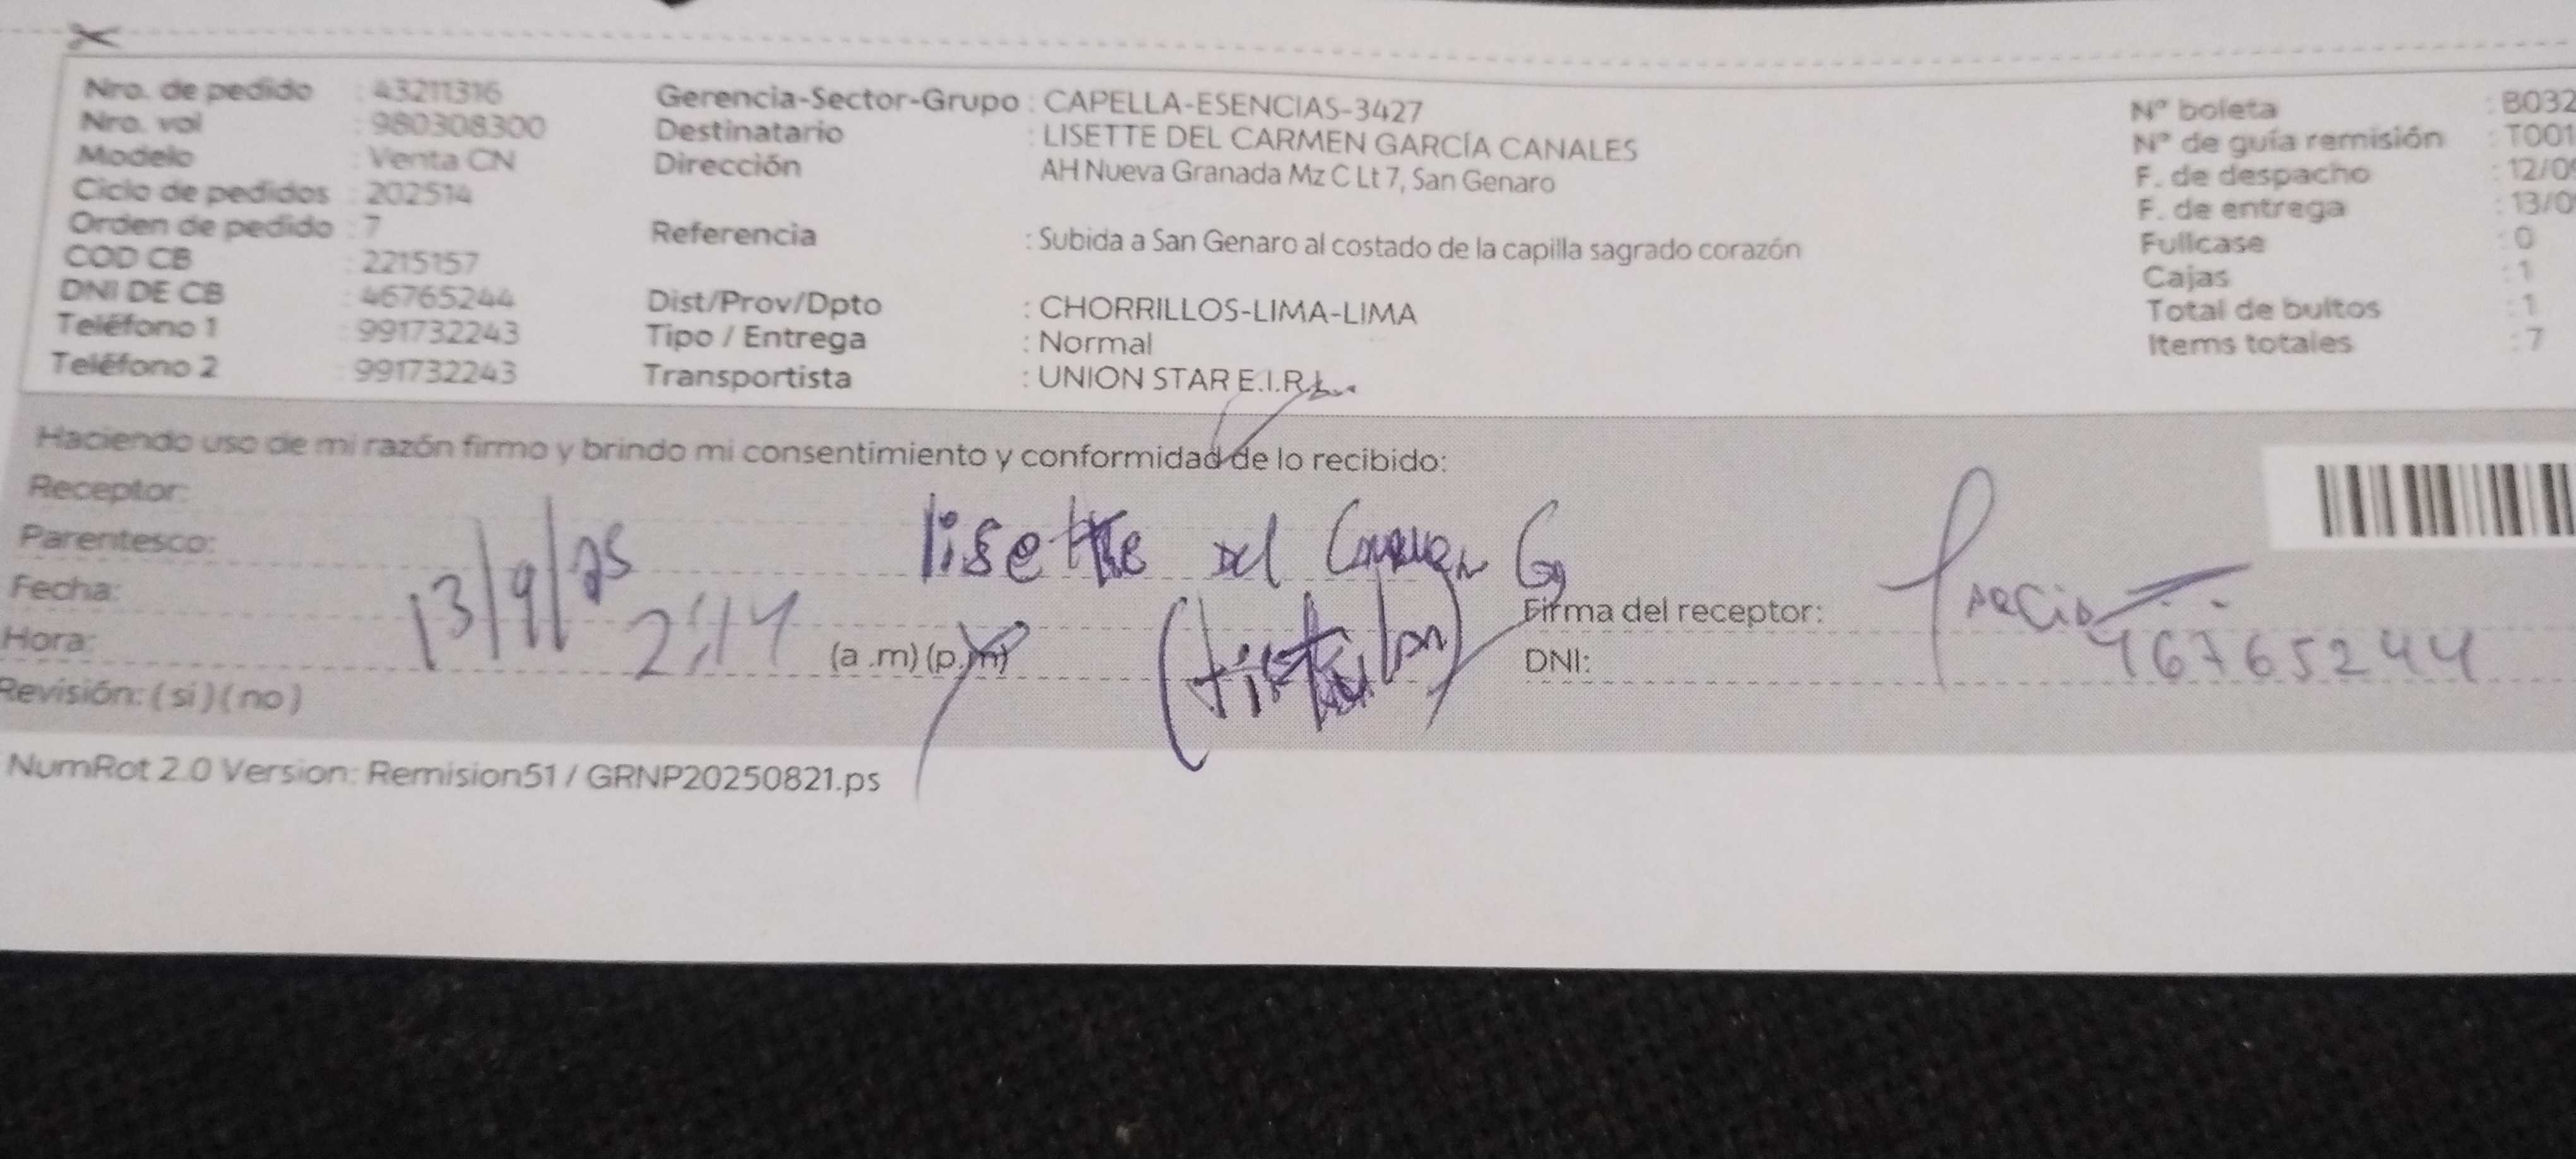 Nro. de pedido : 43211316
Nro. vol : 980308300
Modelo : Venta CN
Ciclo de pedidos : 202514
Orden de pedido : 7
COD CB : 2215157
DNI DE CB : 46765244
Teléfono 1 : 991732243
Teléfono 2 : 991732243
Gerencia-Sector-Grupo : CAPELLA-ESENCIAS-3427
Destinatario : LISETTE DEL CARMEN GARCÍA CANALES
Dirección AH Nueva Granada Mz C Lt 7, San Genaro
Referencia : Subida a San Genaro al costado de la capilla sagrado corazón
Dist/Prov/Dpto : CHORRILLOS-LIMA-LIMA
Tipo / Entrega : Normal
Transportista : UNION STAR E.I.R.L.
N° boleta : B032
N° de guía remisión : T001
F. de despacho : 12/09
F. de entrega : 13/0
Fullcase : 0
Cajas : 1
Total de bultos : 1
Items totales : 7
Haciendo uso de mi razón firmo y brindo mi consentimiento y conformidad de lo recibido:
Receptor: lisette Del Carmen G
Parentesco: (titular)
Fecha: 13/9/25
Hora: 2:14 (a .m) (p.m)
Revisión: ( si ) ( no )
Firma del receptor: García
DNI: 46765244
NumRot 2.0 Version: Remision51 / GRNP20250821.ps